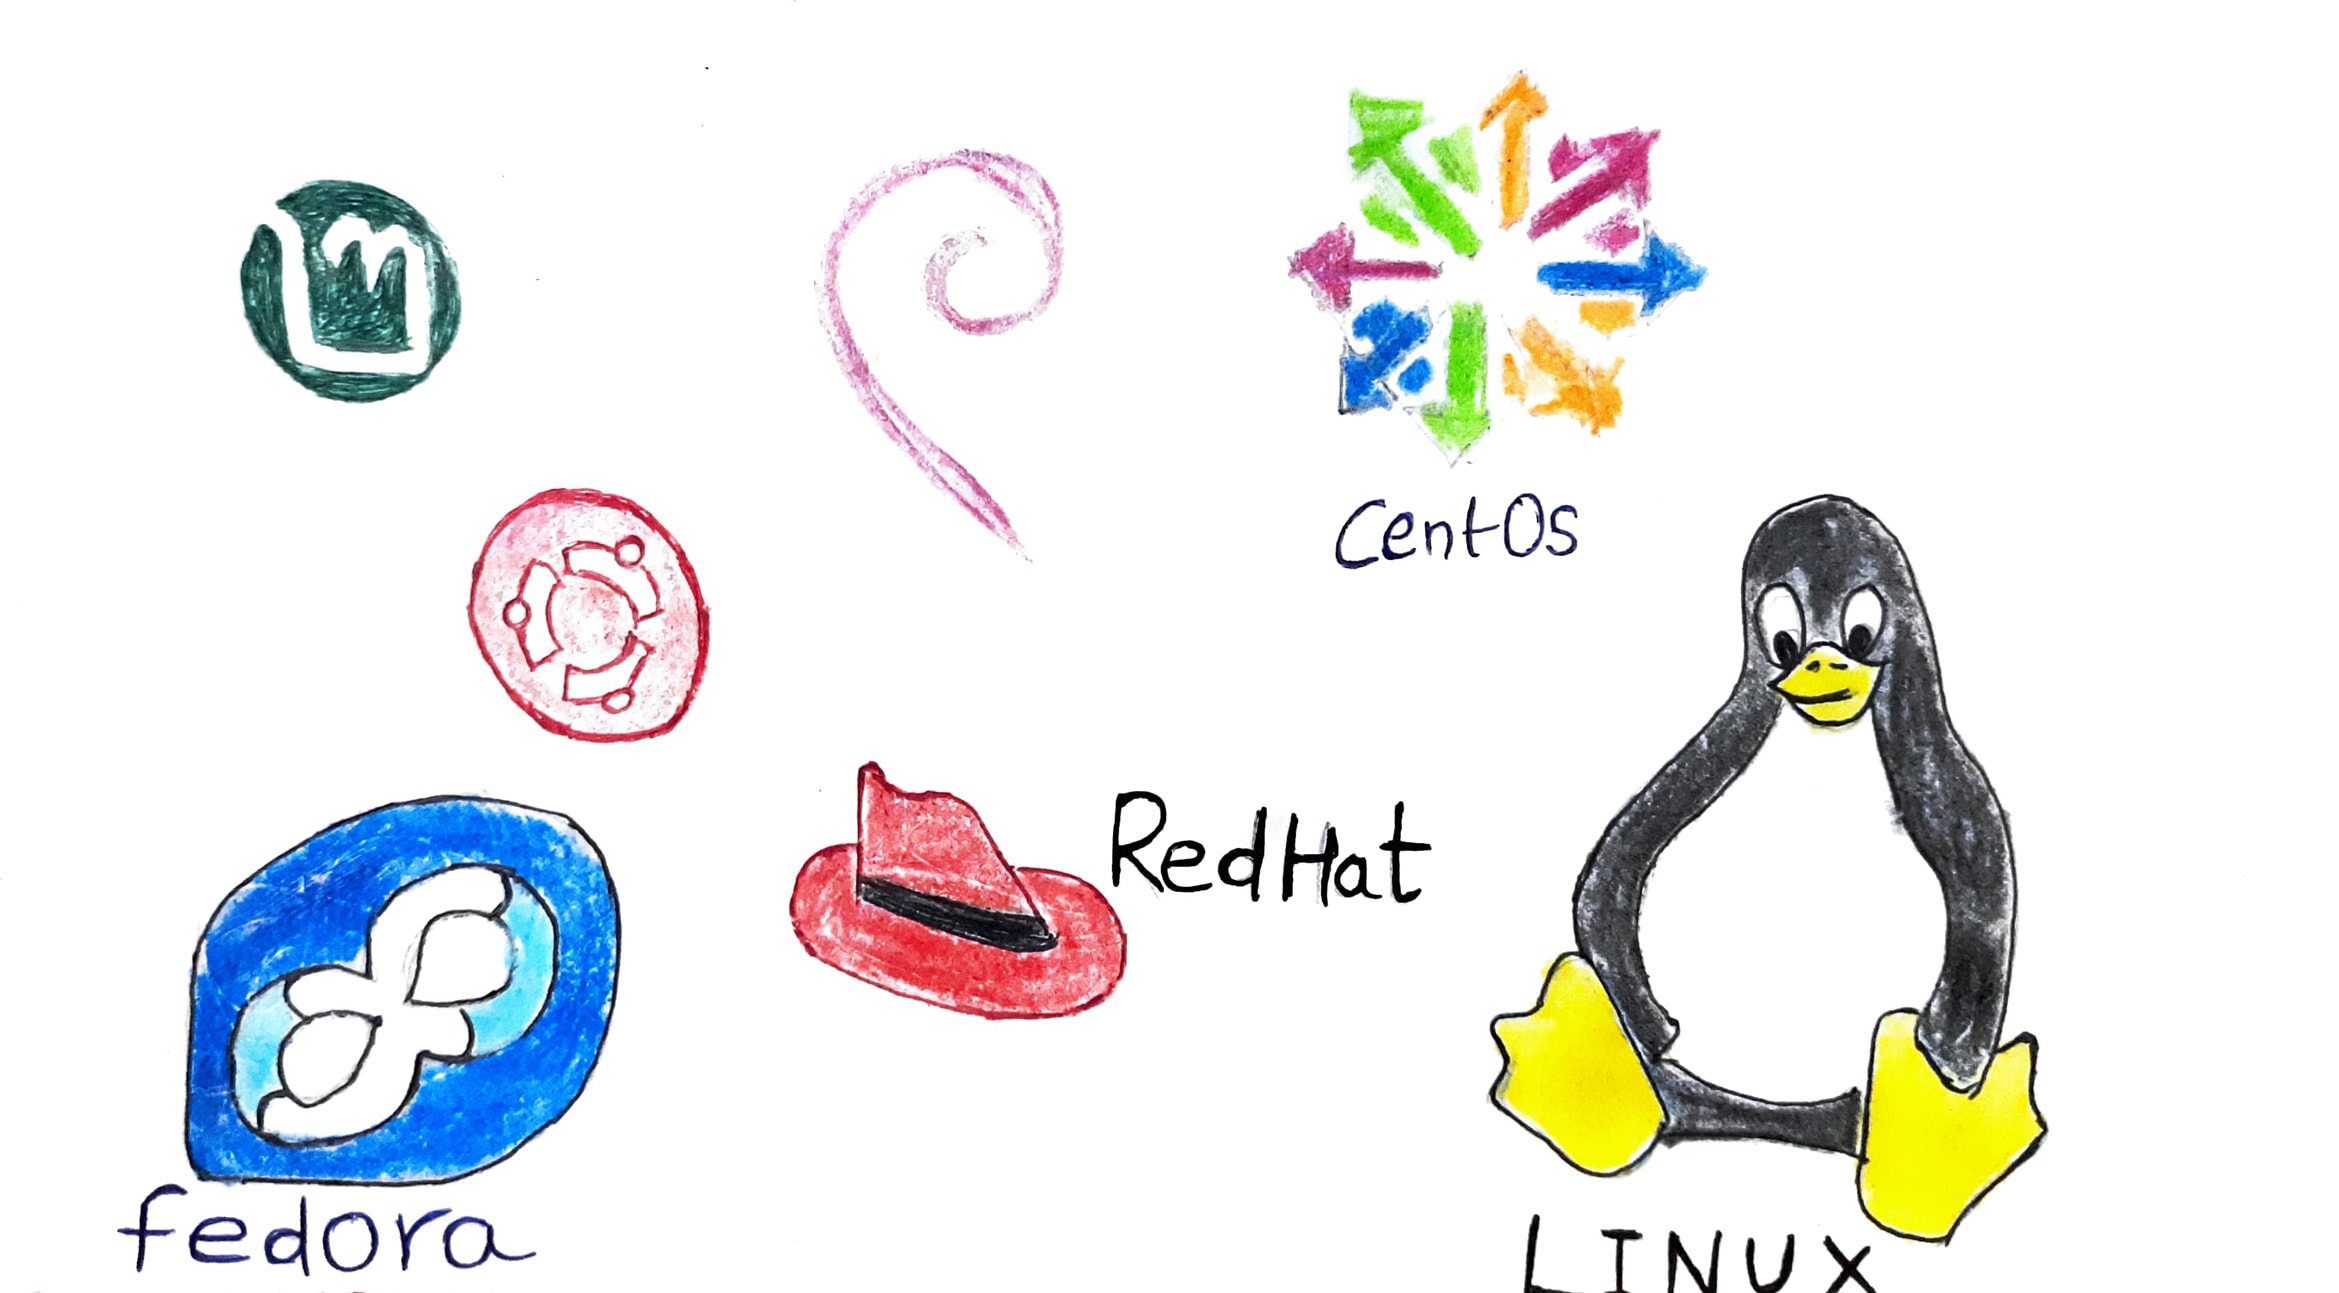 CentOs
RedHat
fedora
LINUX